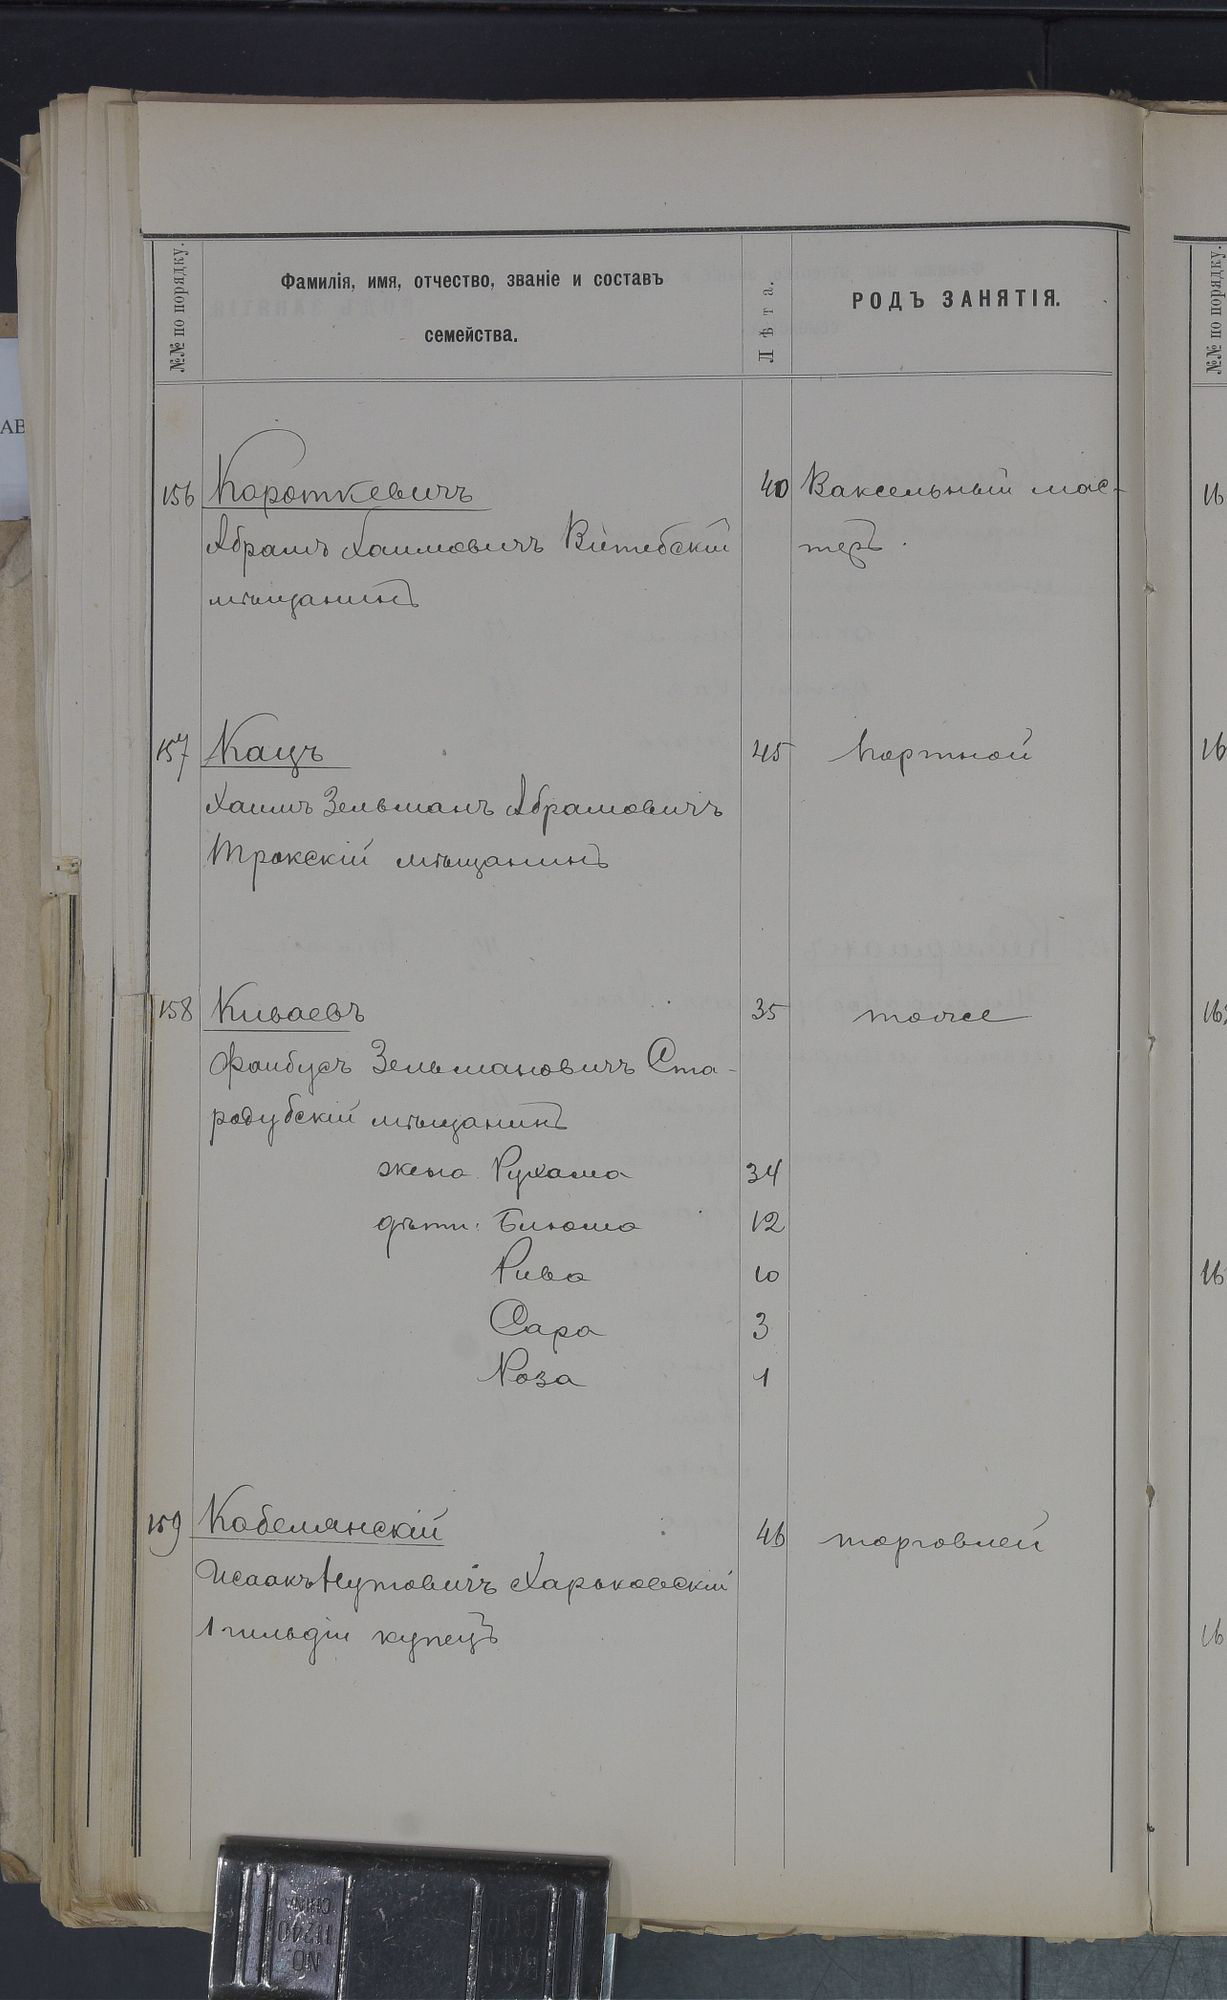 №№ по порядку.
Фамилія, имя, отчество, званіе и составъ
семейства.
Лѣта.
РОДЪ ЗАНЯТІЯ.
№№ по порядку.
156 Короткевичъ 40 Ваксельный мас-
Абрамъ Хаимовичъ Витебскій теръ.
мѣщанинъ
157 Кацъ 45 Портной
Хаимъ Зельманъ Абрамовичъ
Трокскій мѣщанинъ
158 Киваевъ 35 тоже
Фаибусъ Зельмановичъ Ста-
родубскій мѣщанинъ
жена Рухама 34
дѣти: Блюма 12
Рива 10
Сара 3
Роза 1
159 Кобелянскій 46 торговлей
Исаакъ Нутовичъ Харьковскій
1 гильдіи купецъ
АВ
16
16
16
16
NO
11240